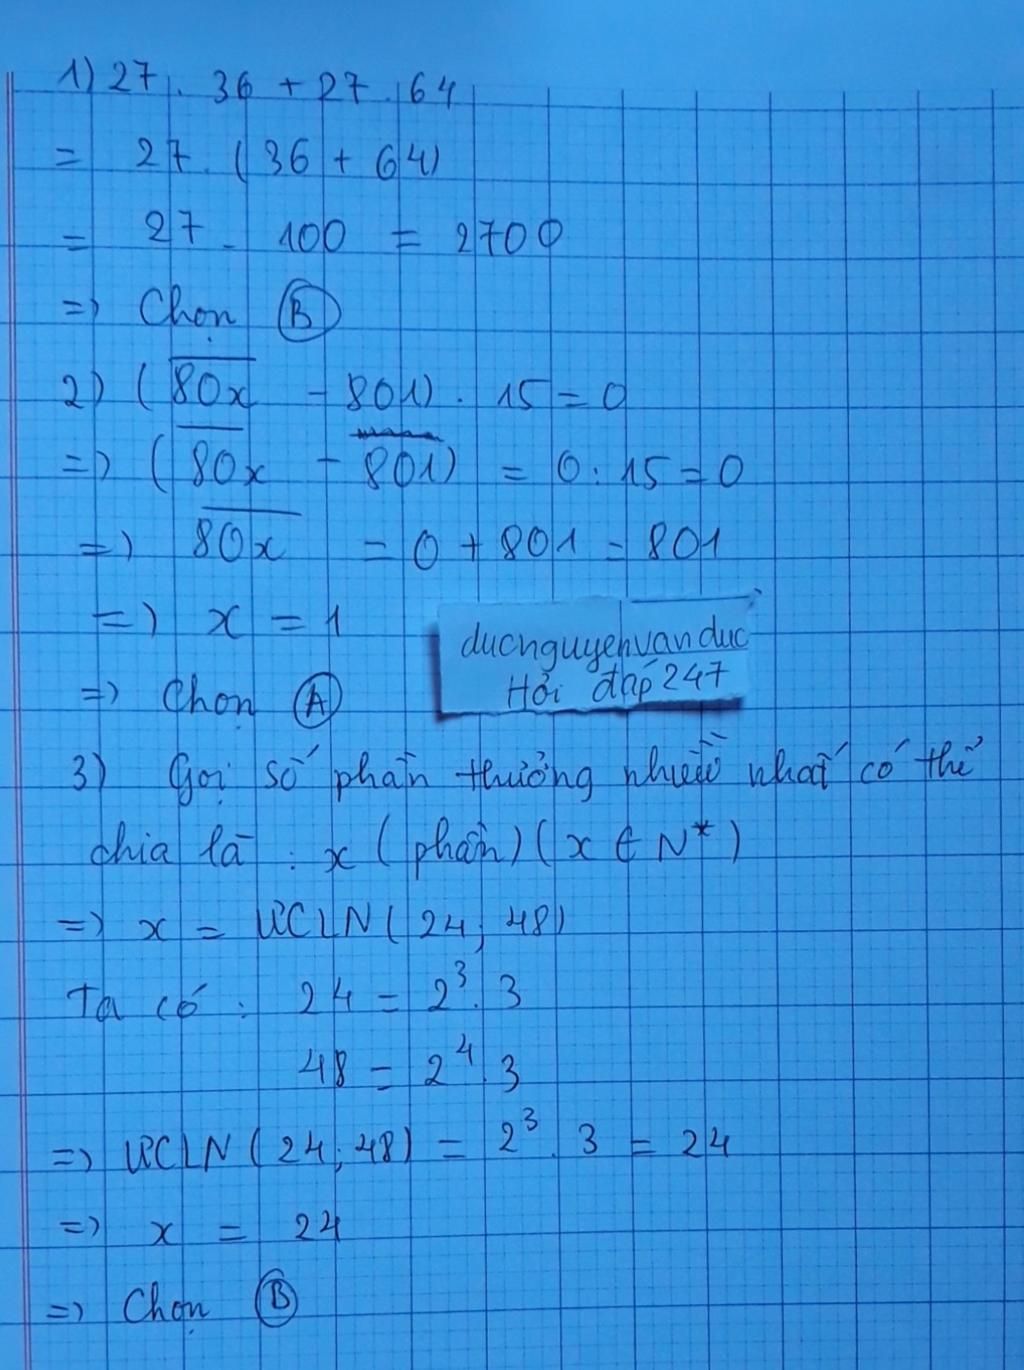 1) 27 . 36 + 27 . 64
= 27 . (36 + 64)
= 27 . 100 = 2700
=> Chọn B
2) (80x - 801) . 15 = 0
=> (80x - 801) = 0 : 15 = 0
=> 80x = 0 + 801 = 801
=> x = 1
ducnguyenvanduc
Hỏi đáp 247
=> Chọn A
3) Gọi số phần thưởng nhiều nhất có thể
chia là : x (phần) (x ∈ N*)
=> x = ƯCLN (24 ; 48)
Ta có : 24 = 2³ . 3
48 = 2⁴ . 3
=> ƯCLN (24 ; 48) = 2³ . 3 = 24
=> x = 24
=> Chọn B